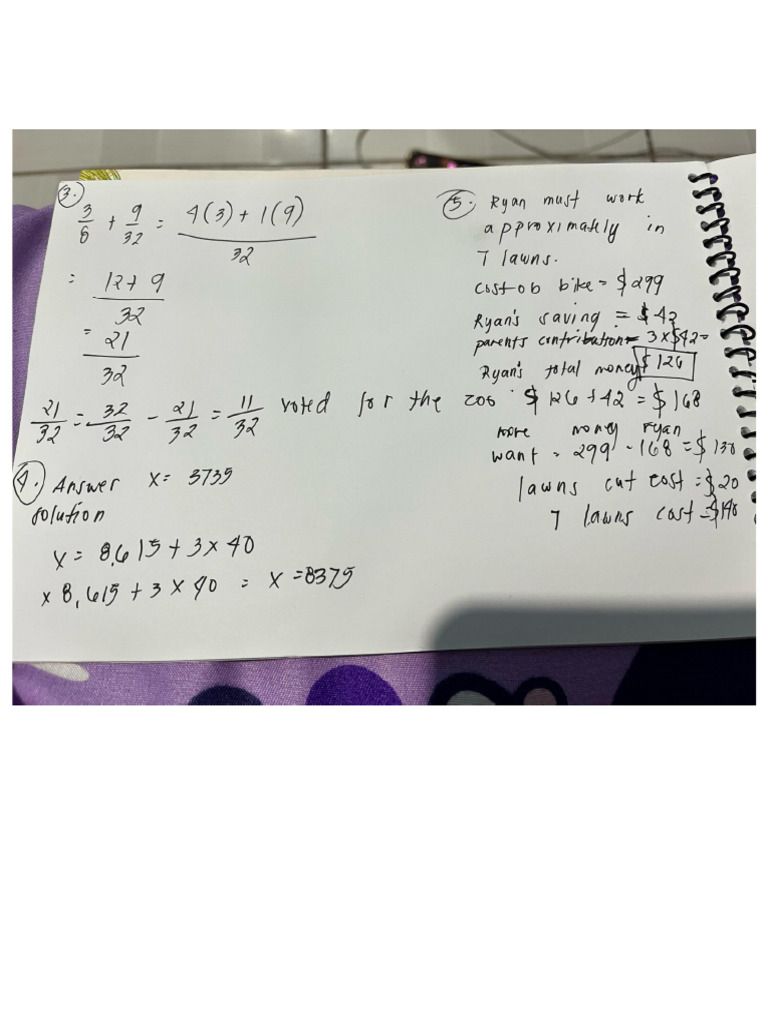 3.
3/8 + 9/32 = 4(3) + 1(9) / 32
= 12 + 9 / 32
= 21 / 32
21/32 = 32/32 - 21/32 = 11/32 voted for the zoo
4. Answer x = 3735
solution
x = 8,615 + 3 x 40
x 8,615 + 3 x 40 = x = 8375
5. Ryan must work
approximately in
7 lawns.
cost ob bike = $299
Ryan's saving = $42
parents contribution = 3 x $42 =
Ryan's total money $126
$126 + 42 = $168
more money Ryan
want = 299 - 168 = $130
lawns cut cost = $20
7 lawns cost = $140